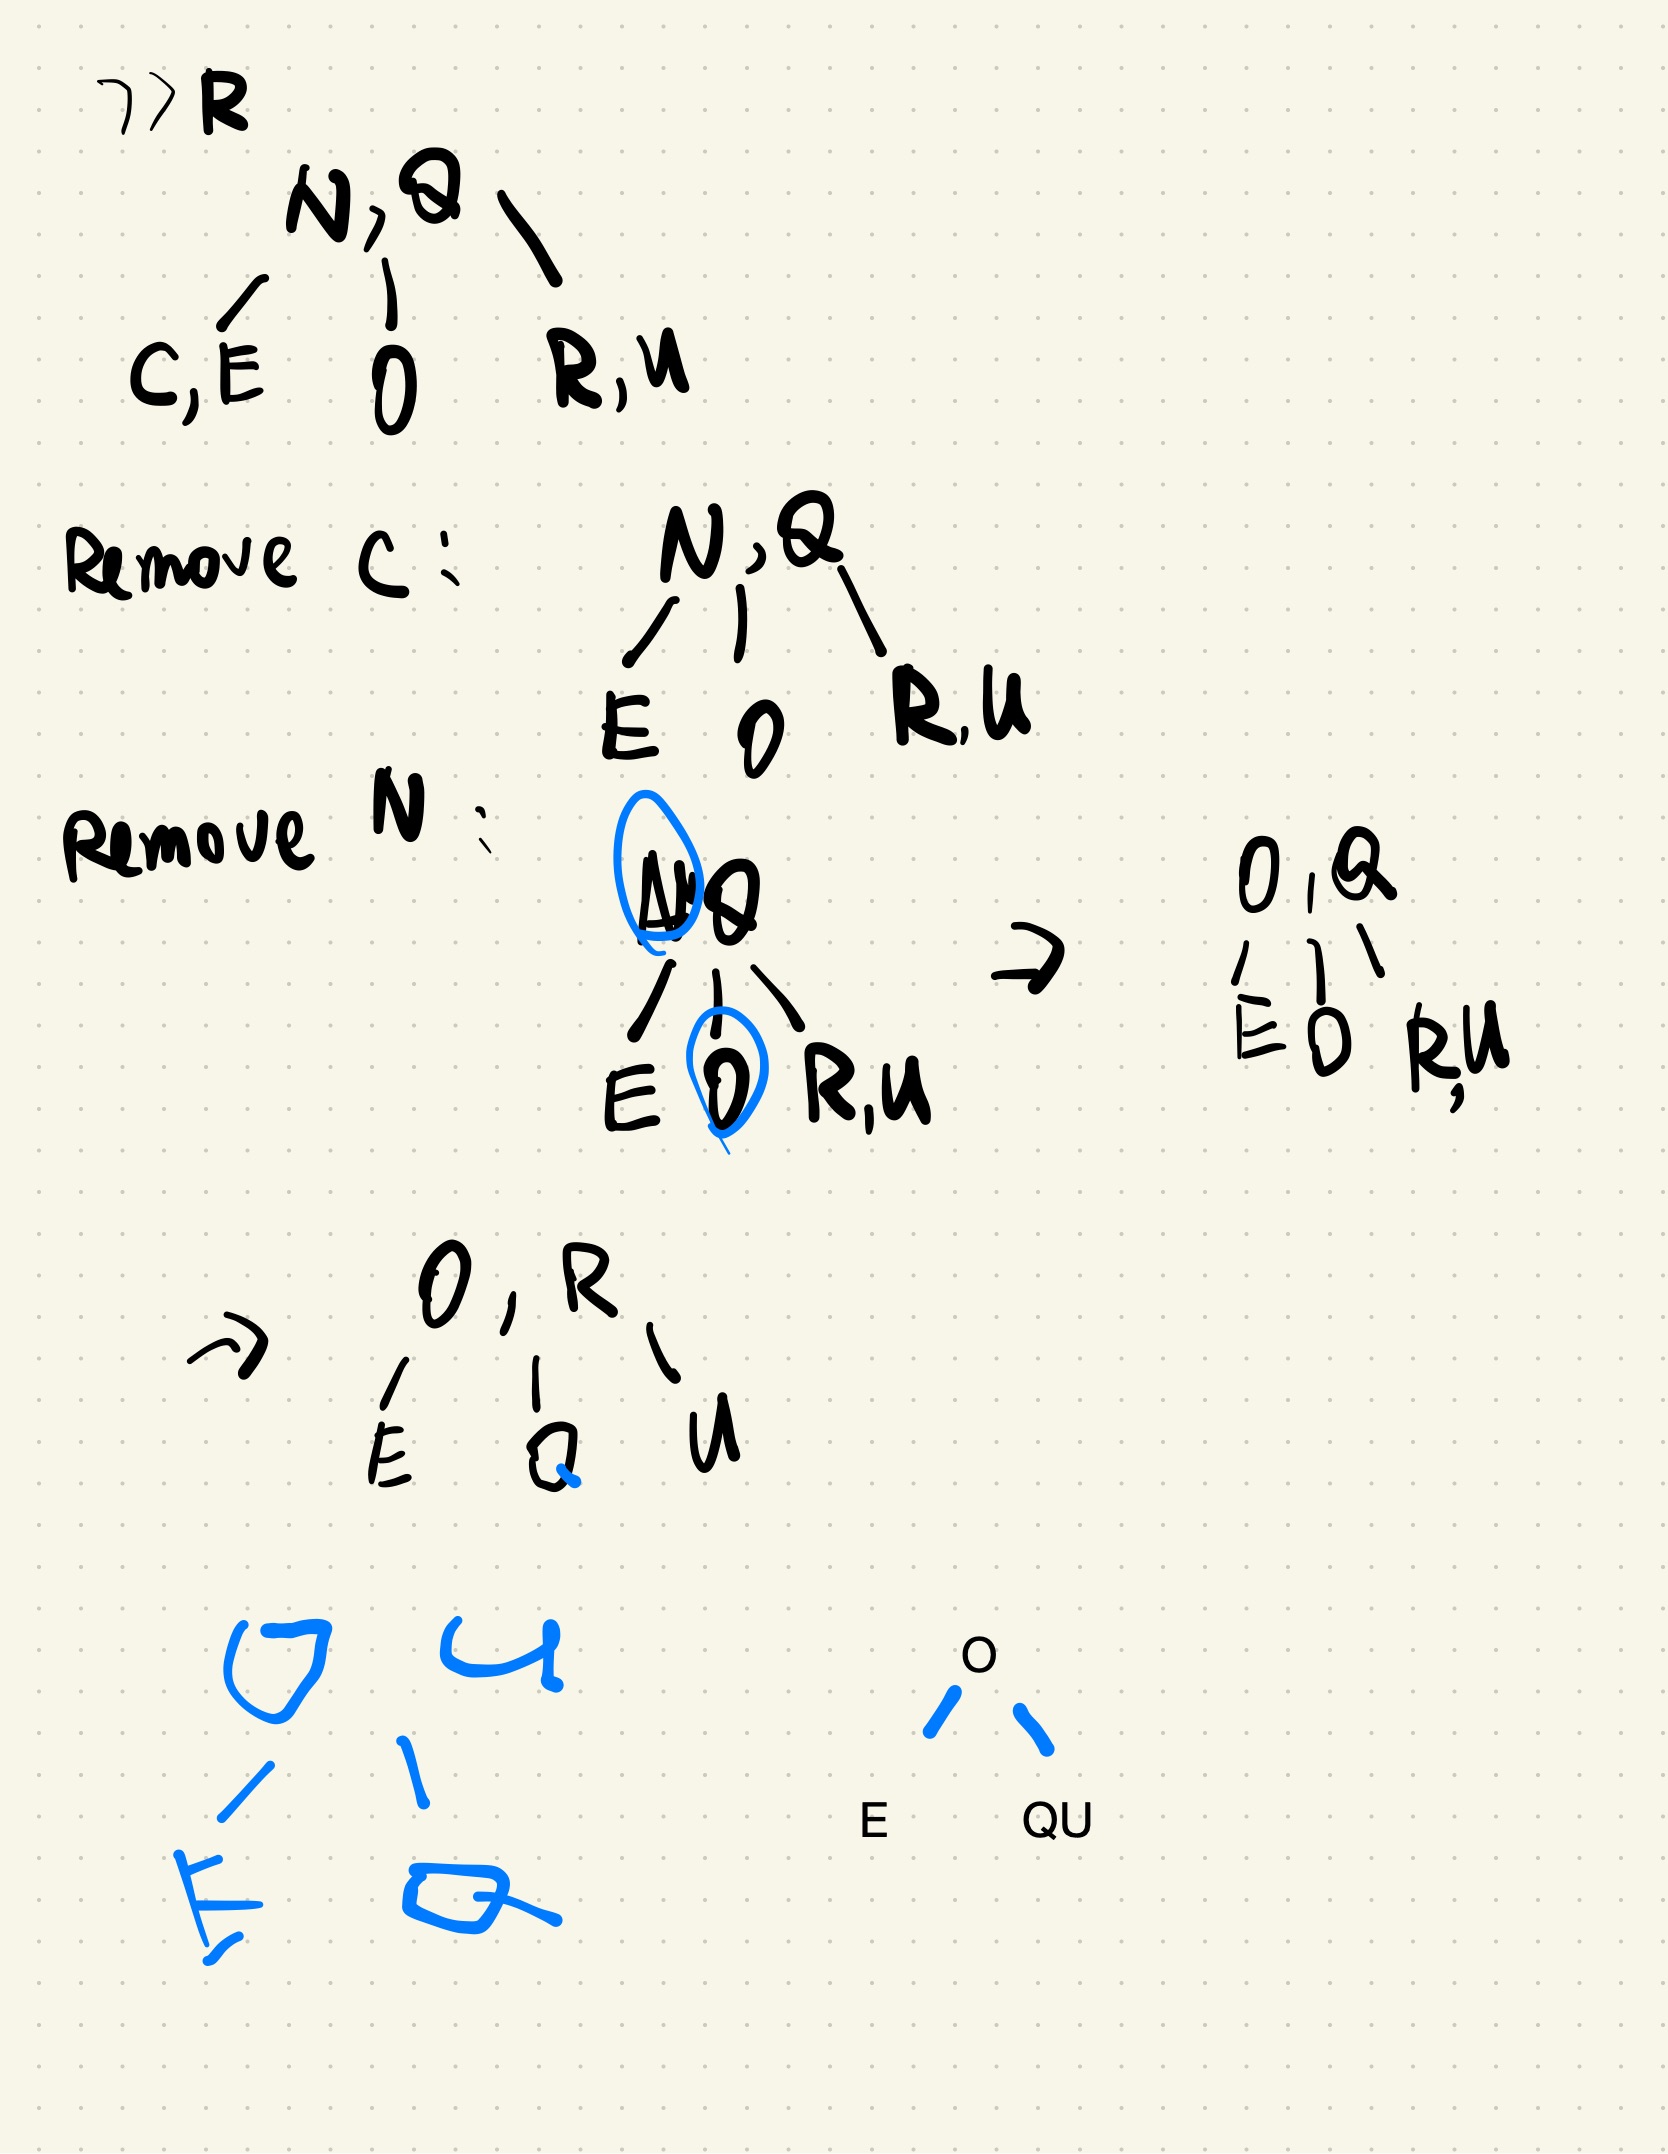 >> R
N, Q
C, E O R, U
Remove C : N, Q
E O R, U
Remove N :
N Q
E O R, U
→ O, Q
E O R, U
→ O, R
E Q U
O U
E Q
O
E QU